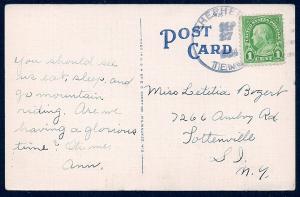 POST CARD
You should see
us eat, sleep, and
go mountain
riding. Are we
having a glorious
time? Oh me!
Ann.
Miss Laetitia Bogert
7266 Amboy Rd
Tottenville
S. I.
N.Y.
UNITED STATES POSTAGE
1 CENT 1